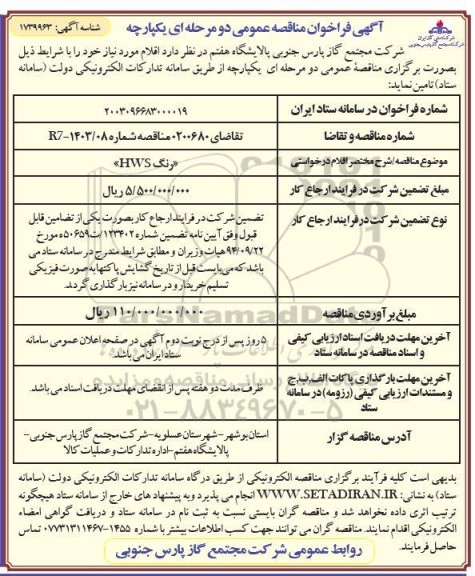 آگهی فراخوان مناقصه عمومی دو مرحله ای یکپارچه
شناسه آگهی: ۱۷۳۹۹۶۳
شرکت ملی گاز ایران
شرکت مجتمع گاز پارس جنوبی
شرکت مجتمع گاز پارس جنوبی پالایشگاه هفتم در نظر دارد اقلام مورد نیاز خود را با شرایط ذیل
بصورت برگزاری مناقصهٔ عمومی دو مرحله ای یکپارچه از طریق سامانه تدارکات الکترونیکی دولت (سامانه
ستاد) تامین نماید:
شماره فراخوان در سامانه ستاد ایران
۲۰۰۳۰۹۶۶۸۳۰۰۰۰۱۹
شماره مناقصه و تقاضا
تقاضای ۰۲۰۰۶۸۰ مناقصه شماره R7-۱۴۰۳/۰۸
موضوع مناقصه/شرح مختصر اقلام درخواستی
«رنگ HWS»
مبلغ تضمین شرکت در فرایند ارجاع کار
۵/۵۰۰/۰۰۰/۰۰۰ ریال
نوع تضمین شرکت در فرایند ارجاع کار
تضمین شرکت در فرایند ارجاع کار بصورت یکی از تضامین قابل
قبول وفق آیین نامه تضمین شماره ۱۲۳۴۰۲/ت۵۰۶۵۹ه مورخ
۹۴/۰۹/۲۲ هیات وزیران و مطابق شرایط مندرج در سامانه ستاد می
باشد که می بایست قبل از تاریخ گشایش پاکتها به صورت فیزیکی
تسلیم خریدار و در سامانه نیز بارگذاری گردد.
مبلغ برآوردی مناقصه
۱۱۰/۰۰۰/۰۰۰/۰۰۰ ریال
آخرین مهلت دریافت اسناد ارزیابی کیفی
و اسناد مناقصه در سامانه ستاد
۵ روز پس از درج نوبت دوم آگهی در صفحه اعلان عمومی سامانه
ستاد ایران می باشد.
آخرین مهلت بارگذاری پاکات الف،ب،ج
و مستندات ارزیابی کیفی (رزومه) در سامانه
ستاد
ظرف مدت دو هفته پس از انقضای مهلت دریافت اسناد می باشد.
آدرس مناقصه گزار
استان بوشهر-شهرستان عسلویه-شرکت مجتمع گاز پارس جنوبی-
پالایشگاه هفتم-اداره تدارکات و عملیات کالا
بدیهی است کلیه فرآیند برگزاری مناقصه الکترونیکی از طریق درگاه سامانه تدارکات الکترونیکی دولت (سامانه
ستاد) به نشانی: WWW.SETADIRAN.IR انجام می پذیرد و به پیشنهاد های خارج از سامانه ستاد هیچگونه
ترتیب اثری داده نخواهد شد و مناقصه گران بایستی نسبت به ثبت نام در سامانه ستاد و دریافت گواهی امضاء
الکترونیکی اقدام نمایند. مناقصه گران می توانند جهت کسب اطلاعات بیشتر با شماره ۱۴۵۵-۰۷۷۳۱۳۱۱۴۶۷ تماس
حاصل فرمایند.
روابط عمومی شرکت مجتمع گاز پارس جنوبی
ParsNamadData
۰۲۱-۸۸۳۴۹۶۷۰-۵